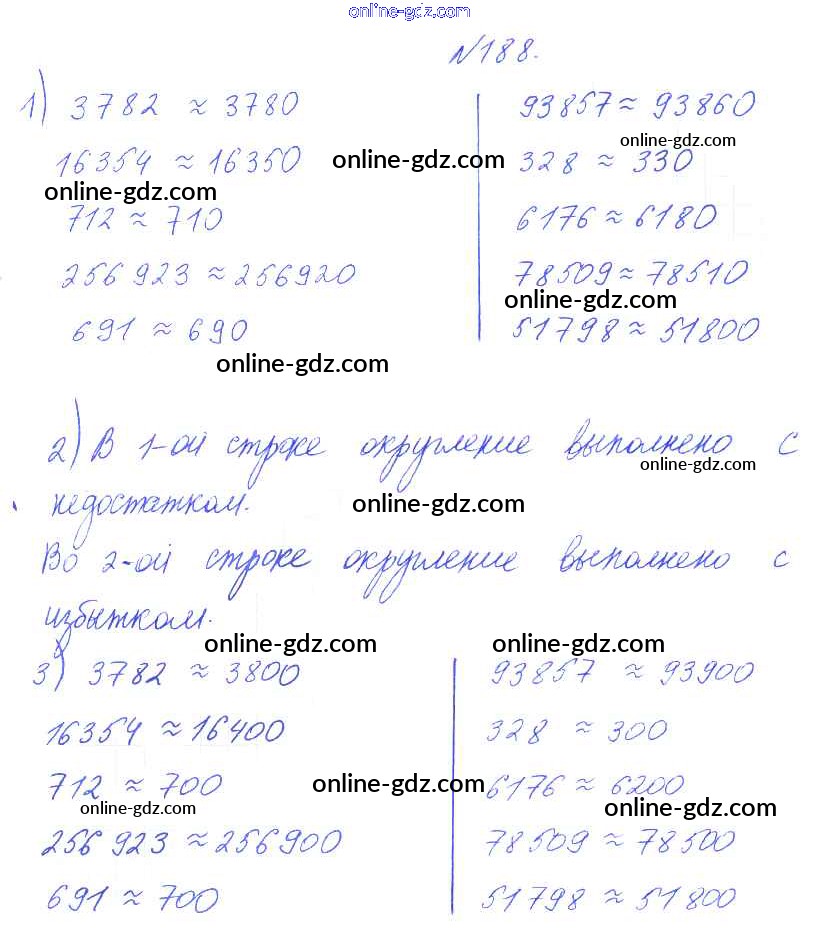 online-gdz.com
№188.
1) 3782 ≈ 3780
16354 ≈ 16350
online-gdz.com
712 ≈ 710
256 923 ≈ 256920
691 ≈ 690
online-gdz.com
93857 ≈ 93860
online-gdz.com
online-gdz.com
328 ≈ 330
6176 ≈ 6180
78509 ≈ 78510
online-gdz.com
51798 ≈ 51800
2) В 1-ой строке округление выполнено с
online-gdz.com
недостатком.
online-gdz.com
Во 2-ой строке округление выполнено с
избытком.
online-gdz.com
online-gdz.com
3) 3782 ≈ 3800
16354 ≈ 16400
712 ≈ 700
online-gdz.com
online-gdz.com
256 923 ≈ 256900
691 ≈ 700
93857 ≈ 93900
328 ≈ 300
6176 ≈ 6200
online-gdz.com
78509 ≈ 78500
51798 ≈ 51800